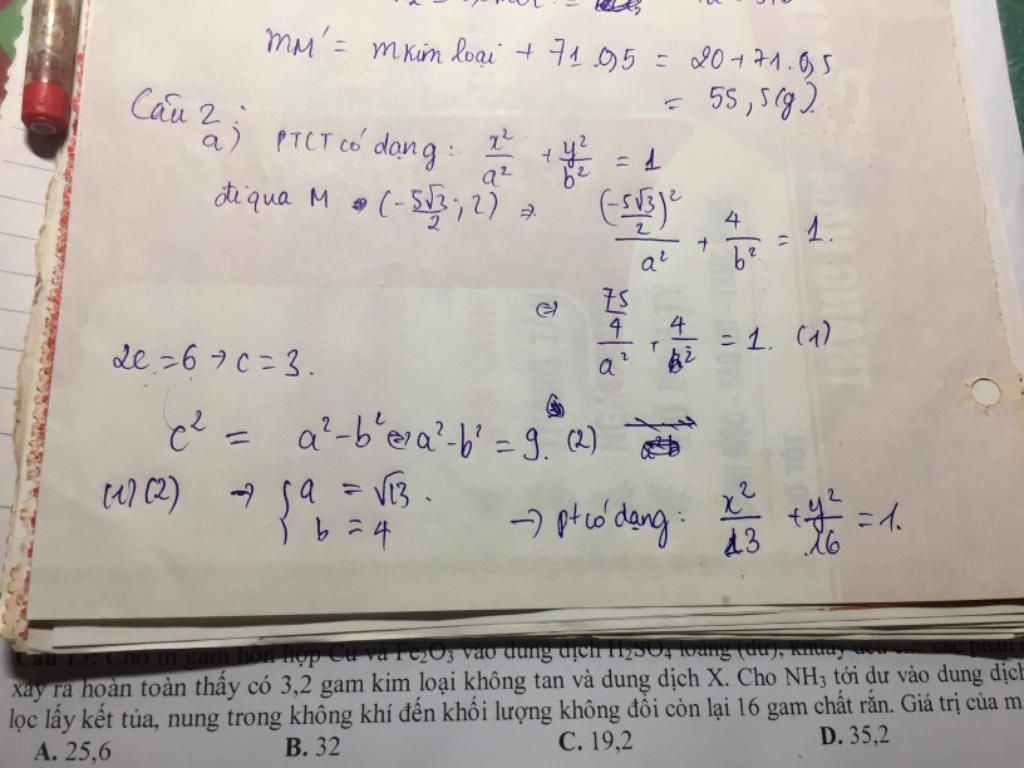 mM' = m kim loại + 71.0,5 = 20+71.0,5
= 55,5(g)
Câu 2:
a) PTCT có dạng: x²/a² + y²/b² = 1
đi qua M (-5√3/2; 2) ⇒ (-5√3/2)²/a² + 4/b² = 1.
⇔ 75/4/a² + 4/b² = 1. (1)
2c = 6 → c = 3.
c² = a²-b² ⇔ a²-b² = 9. (2)
(1)(2) → { a = √13.
b = 4
→ pt có dạng: x²/13 + y²/16 = 1.
Câu 13: Cho m gam hỗn hợp Cu và Fe₂O₃ vào dung dịch H₂SO₄ loãng (dư), khuấy các phản
xảy ra hoàn toàn thấy có 3,2 gam kim loại không tan và dung dịch X. Cho NH₃ tới dư vào dung dịch
lọc lấy kết tủa, nung trong không khí đến khối lượng không đổi còn lại 16 gam chất rắn. Giá trị của m
A. 25,6 B. 32 C. 19,2 D. 35,2